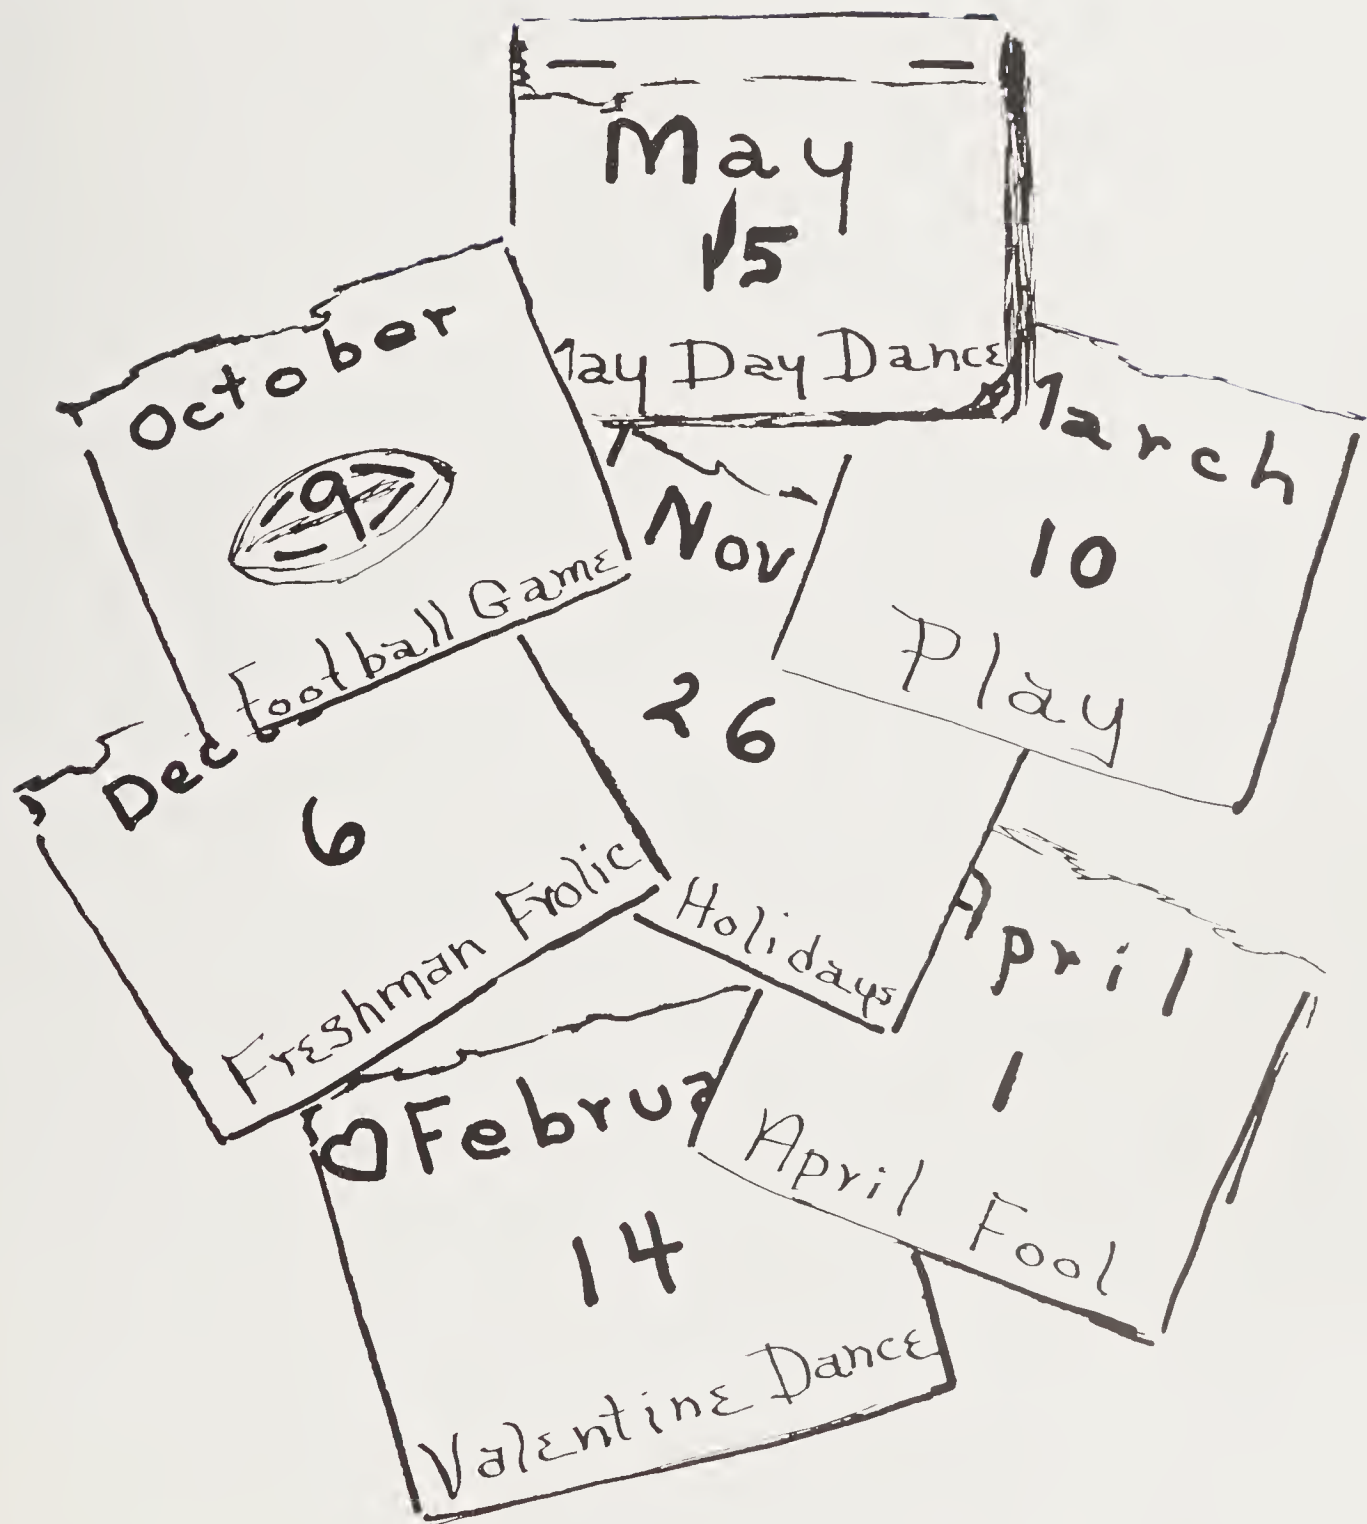 May
15
May Day Dance
October
9
Football Game
March
10
Play
Nov
26
Holidays
Dec
6
Freshman Frolic
April
1
April Fool
Februa
14
Valentine Dance